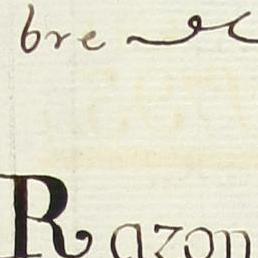 bre
Razon